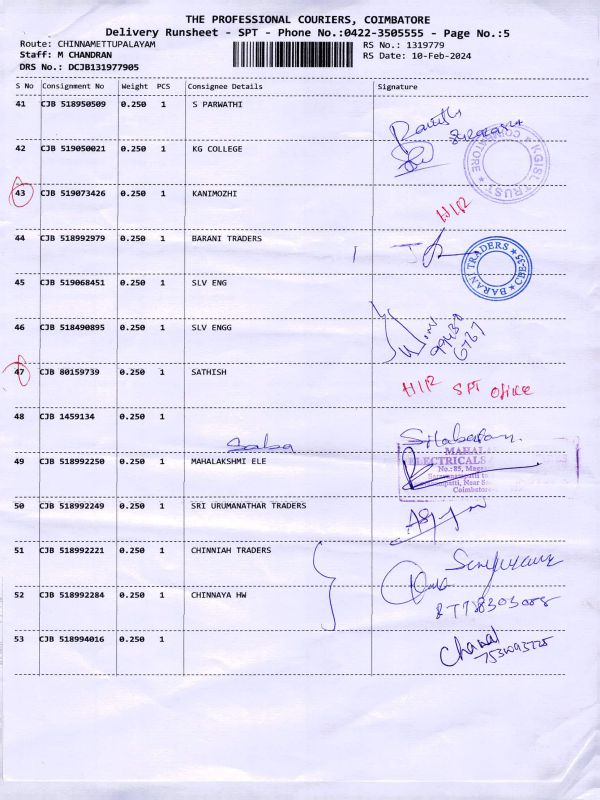 THE PROFESSIONAL COURIERS, COIMBATORE
Delivery Runsheet - SPT - Phone No.:0422-3505555 - Page No.:5
Route: CHINNAMETTUPALAYAM
RS No.: 1319779
Staff: M CHANDRAN
RS Date: 10-Feb-2024
DRS No.: DCJB131977905
S No Consignment No Weight PCS Consignee Details Signature
41 CJB 518950509 0.250 1 S PARWATHI
42 CJB 519050021 0.250 1 KG COLLEGE
KGISL TRUST COIMBATORE
43 CJB 519073426 0.250 1 KANIMOZHI
H/R
44 CJB 518992979 0.250 1 BARANI TRADERS
BARANI TRADERS CBE-35
45 CJB 519068451 0.250 1 SLV ENG
46 CJB 518490895 0.250 1 SLV ENGG
99430
6767
47 CJB 80159739 0.250 1 SATHISH H/R SPT office
48 CJB 1459134 0.250 1
Saba
49 CJB 518992250 0.250 1 MAHALAKSHMI ELE
MAHAL
ELECTRICALS
No.:85,
Coimbatore
50 CJB 518992249 0.250 1 SRI URUMANATHAR TRADERS
51 CJB 518992221 0.250 1 CHINNIAH TRADERS
52 CJB 518992284 0.250 1 CHINNAYA HW
53 CJB 518994016 0.250 1